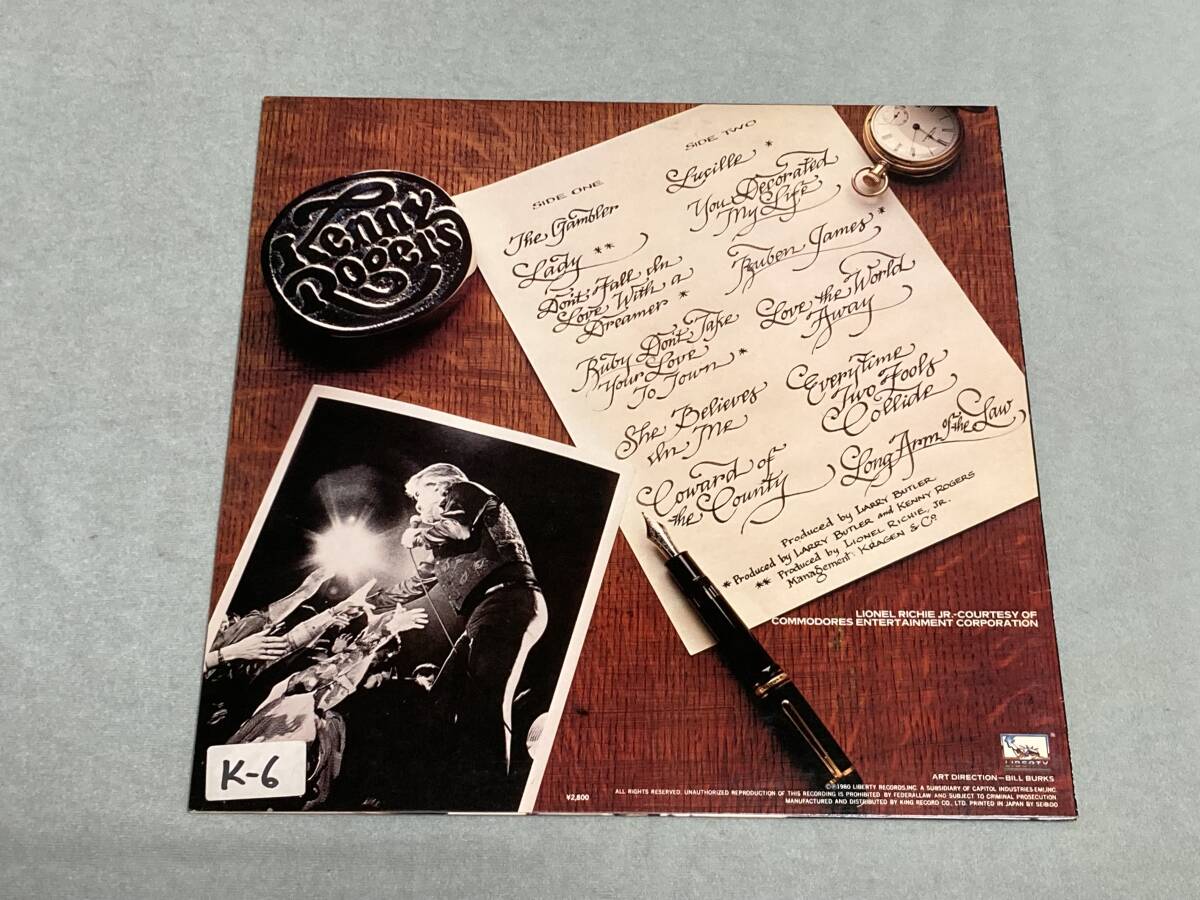 Kenny
Rogers
SIDE ONE
The Gambler
Lady **
Don't Fall In
Love With a
Dreamer *
Ruby Don't Take
Your Love
To Town *
She Believes
In Me
Coward of
the County
SIDE TWO
Lucille *
You Decorated
My Life
Ruben James *
Love the World
Away
Everytime
Two Fools
Collide
Long Arm of the Law
Produced by LARRY BUTLER
*Produced by LARRY BUTLER and KENNY ROGERS
** Produced by LIONEL RICHIE, JR.
Management: KRAGEN & Co.
LIONEL RICHIE JR.-COURTESY OF
COMMODORES ENTERTAINMENT CORPORATION
K-6
LIBERTY
®
ART DIRECTION—BILL BURKS
¥2,800
©℗1980 LIBERTY RECORDS,INC. A SUBSIDIARY OF CAPITOL INDUSTRIES-EMI,INC.
ALL RIGHTS RESERVED. UNAUTHORIZED REPRODUCTION OF THIS RECORDING IS PROHIBITED BY FEDERALLAW AND SUBJECT TO CRIMINAL PROSECUTION
MANUFACTURED AND DISTRIBUTED BY KING RECORD CO., LTD. PRINTED IN JAPAN BY SEIBIDO